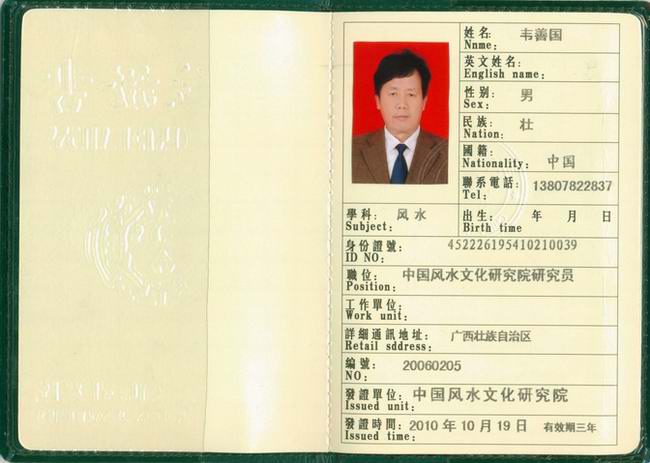 姓名: 韦善国
Nnme:
英文姓名:
English name:
性别: 男
Sex:
民族: 壮
Nation:
國籍: 中国
Nationality:
聯系電話: 13807822837
Tel:
學科: 风水
Subject:
出生: 年 月 日
Birth time
身份證號: 452226195410210039
ID NO:
職位: 中国风水文化研究院研究员
Position:
工作單位:
Work unit:
詳細通訊地址: 广西壮族自治区
Retail sddress:
編號: 20060205
NO:
發證單位: 中国风水文化研究院
Issued unit:
發證時間: 2010年10月19日 有效期三年
Issued time: